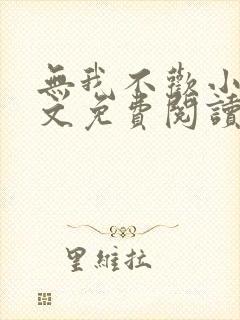 無我不歡小
文免費閱讀
里維拉